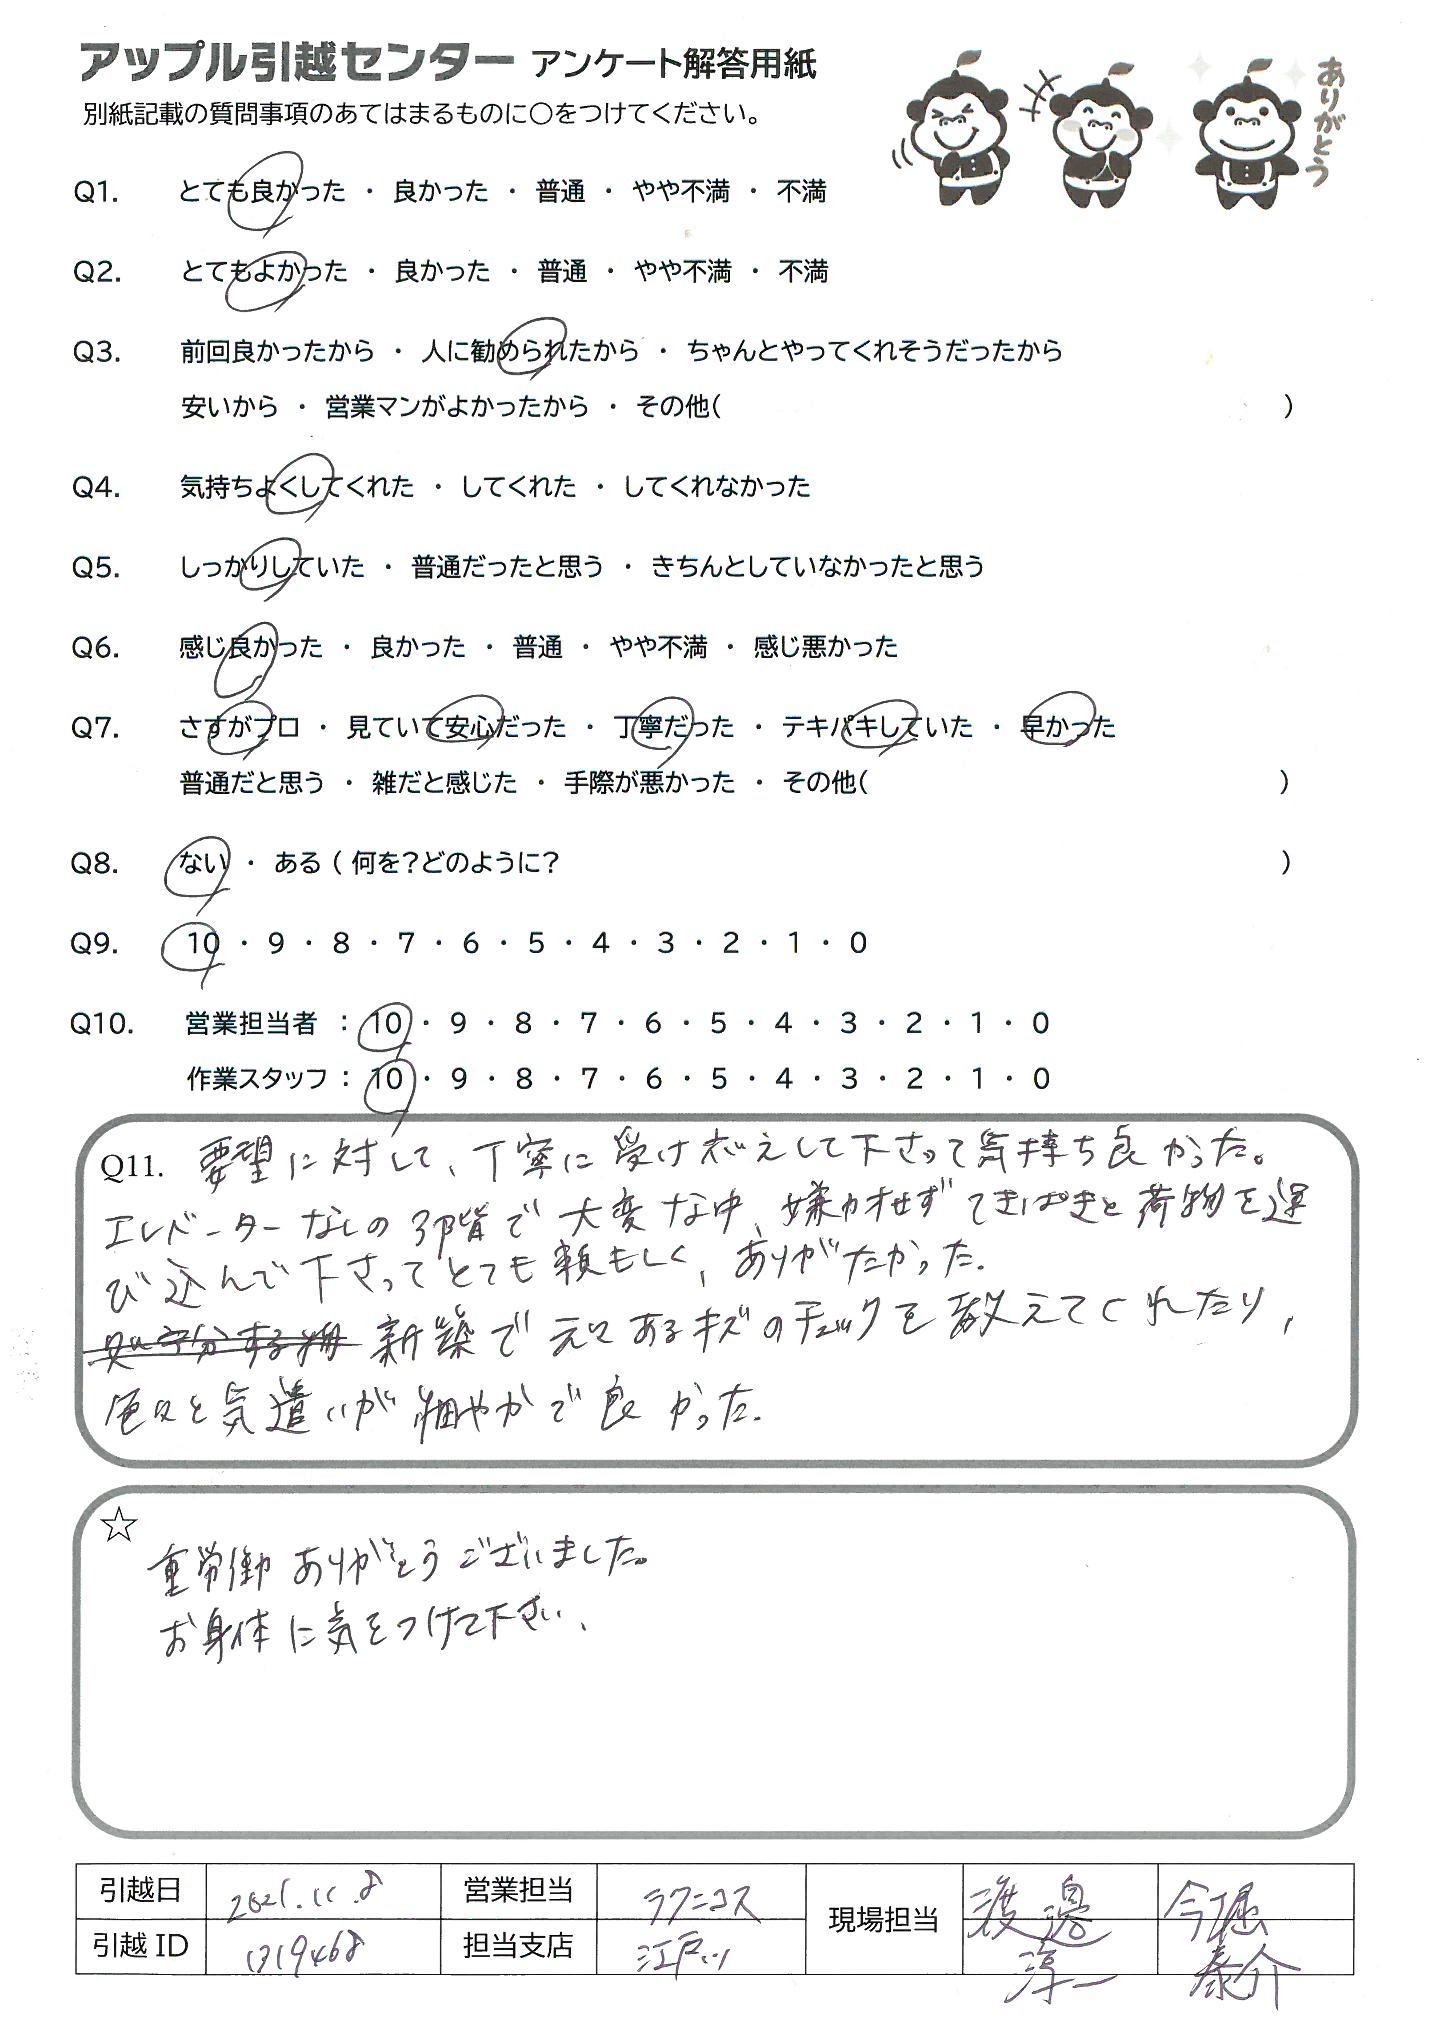 アップル引越センター アンケート解答用紙
ありがとう
別紙記載の質問事項のあてはまるものに○をつけてください。
Q1. とても良かった ・ 良かった ・ 普通 ・ やや不満 ・ 不満
Q2. とてもよかった ・ 良かった ・ 普通 ・ やや不満 ・ 不満
Q3. 前回良かったから ・ 人に勧められたから ・ ちゃんとやってくれそうだったから
安いから ・ 営業マンがよかったから ・ その他( )
Q4. 気持ちよくしてくれた ・ してくれた ・ してくれなかった
Q5. しっかりしていた ・ 普通だったと思う ・ きちんとしていなかったと思う
Q6. 感じ良かった ・ 良かった ・ 普通 ・ やや不満 ・ 感じ悪かった
Q7. さすがプロ ・ 見ていて安心だった ・ 丁寧だった ・ テキパキしていた ・ 早かった
普通だと思う ・ 雑だと感じた ・ 手際が悪かった ・ その他( )
Q8. ない ・ ある ( 何を?どのように? )
Q9. 10 ・ 9 ・ 8 ・ 7 ・ 6 ・ 5 ・ 4 ・ 3 ・ 2 ・ 1 ・ 0
Q10. 営業担当者 : 10 ・ 9 ・ 8 ・ 7 ・ 6 ・ 5 ・ 4 ・ 3 ・ 2 ・ 1 ・ 0
作業スタッフ : 10 ・ 9 ・ 8 ・ 7 ・ 6 ・ 5 ・ 4 ・ 3 ・ 2 ・ 1 ・ 0
Q11. 要望に対して、丁寧に受け応えして下さって気持ち良かった。
エレベーターなしの3階で大変な中、嫌がせずてきぱきと荷物を運
び込んで下さってとても頼もしく、ありがたかった。
新築で元々あるキズのチェックを教えてくれたり、
色々と気遣いが細やかで良かった。
☆
重労働ありがとうございました。
お身体に気をつけて下さい。
引越日 2021.11.8 営業担当 ラクニコス 現場担当 渡邉淳一 今堀泰介
引越ID 1319468 担当支店 江戸川